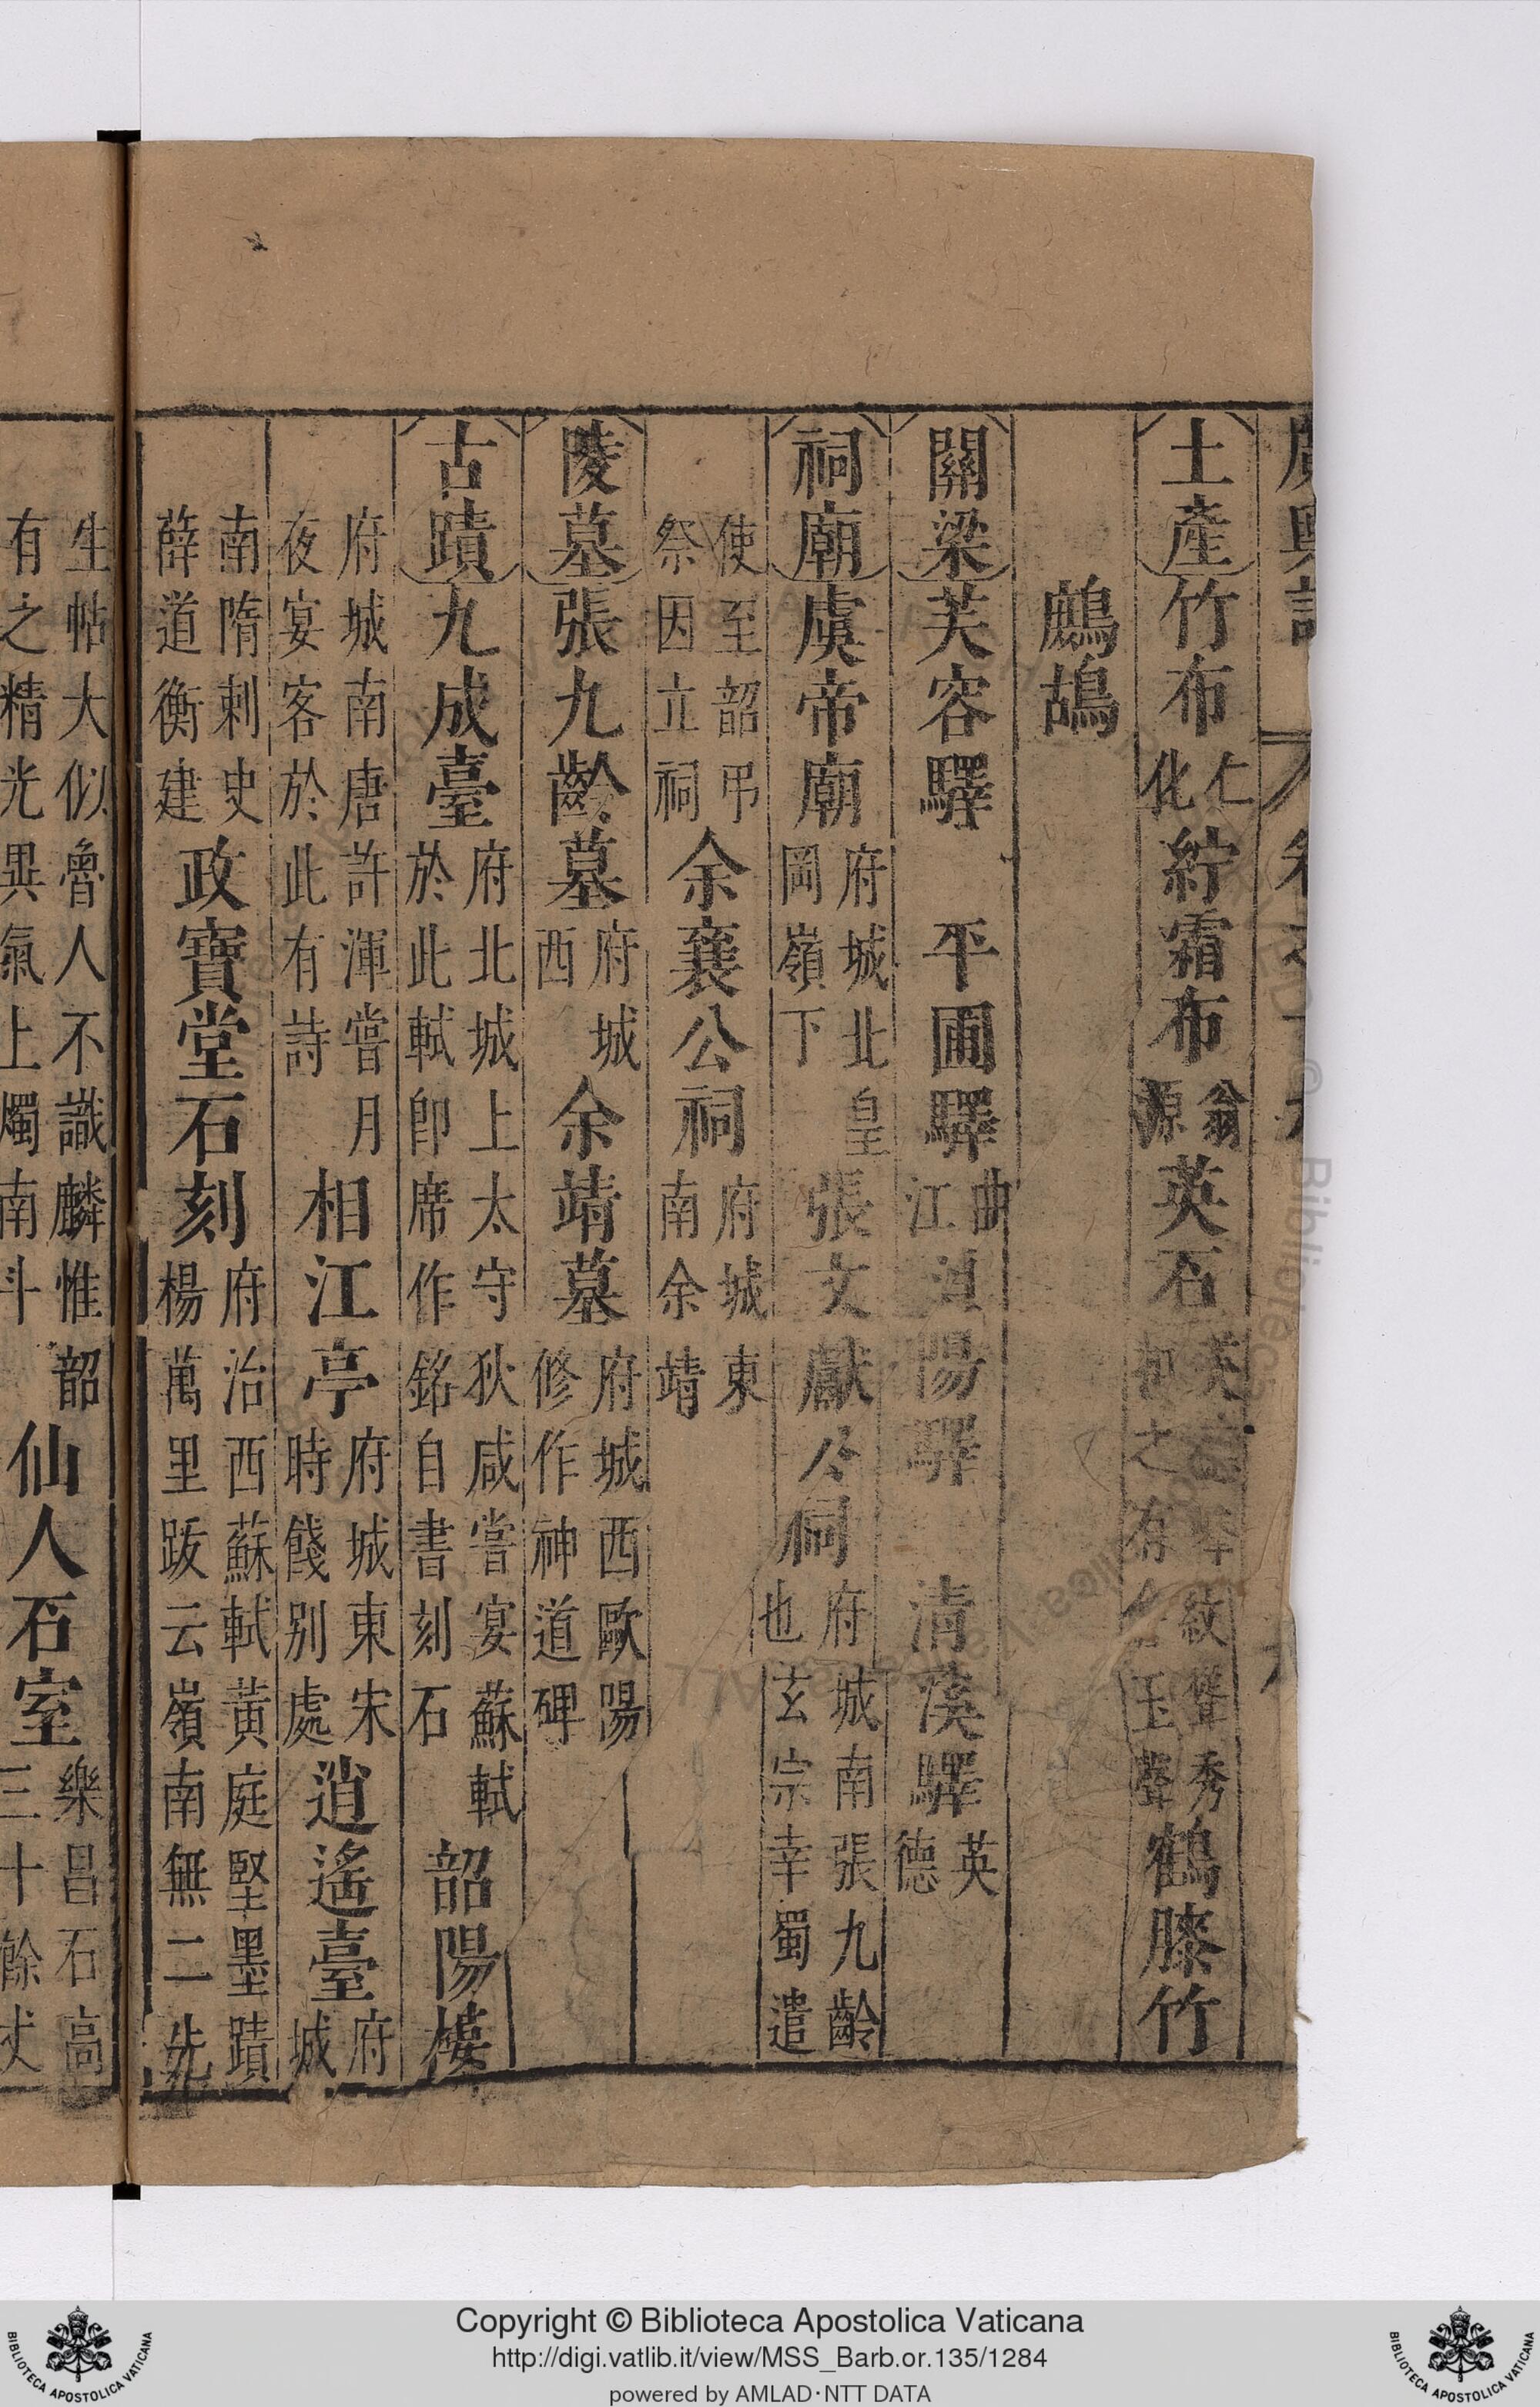 土產竹布仁化紵霜布翁源英石英之有紋聳秀玉聲鶴膝竹
鷓鴣
關梁芙容驛 平圃驛曲江 陽驛 清溪驛英德
祠廟虞帝廟府城北皇岡嶺下張文獻公祠府城南張九齡也玄宗幸蜀遣
使至韶弔祭因立祠余襄公祠府城東南余靖
陵墓張九齡墓府城西余靖墓府城西歐陽修作神道碑
古蹟九成臺府北城上太守狄咸嘗宴蘇軾於此軾卽席作銘自書刻石韶陽樓
府城南唐許渾嘗月夜宴客於此有詩相江亭府城東宋時餞別處逍遙臺府城
南隋刺史薛道衡建政寶堂石刻府治西蘇軾黃庭堅墨蹟楊萬里跋云嶺南無二先
生帖大似魯人不識麟惟韶有之精光異氣上燭南斗仙人石室樂昌石高三十餘丈
Copyright © Biblioteca Apostolica Vaticana
http://digi.vatlib.it/view/MSS_Barb.or.135/1284
powered by AMLAD·NTT DATA
BIBLIOTECA APOSTOLICA VATICANA
BIBLIOTECA APOSTOLICA VATICANA